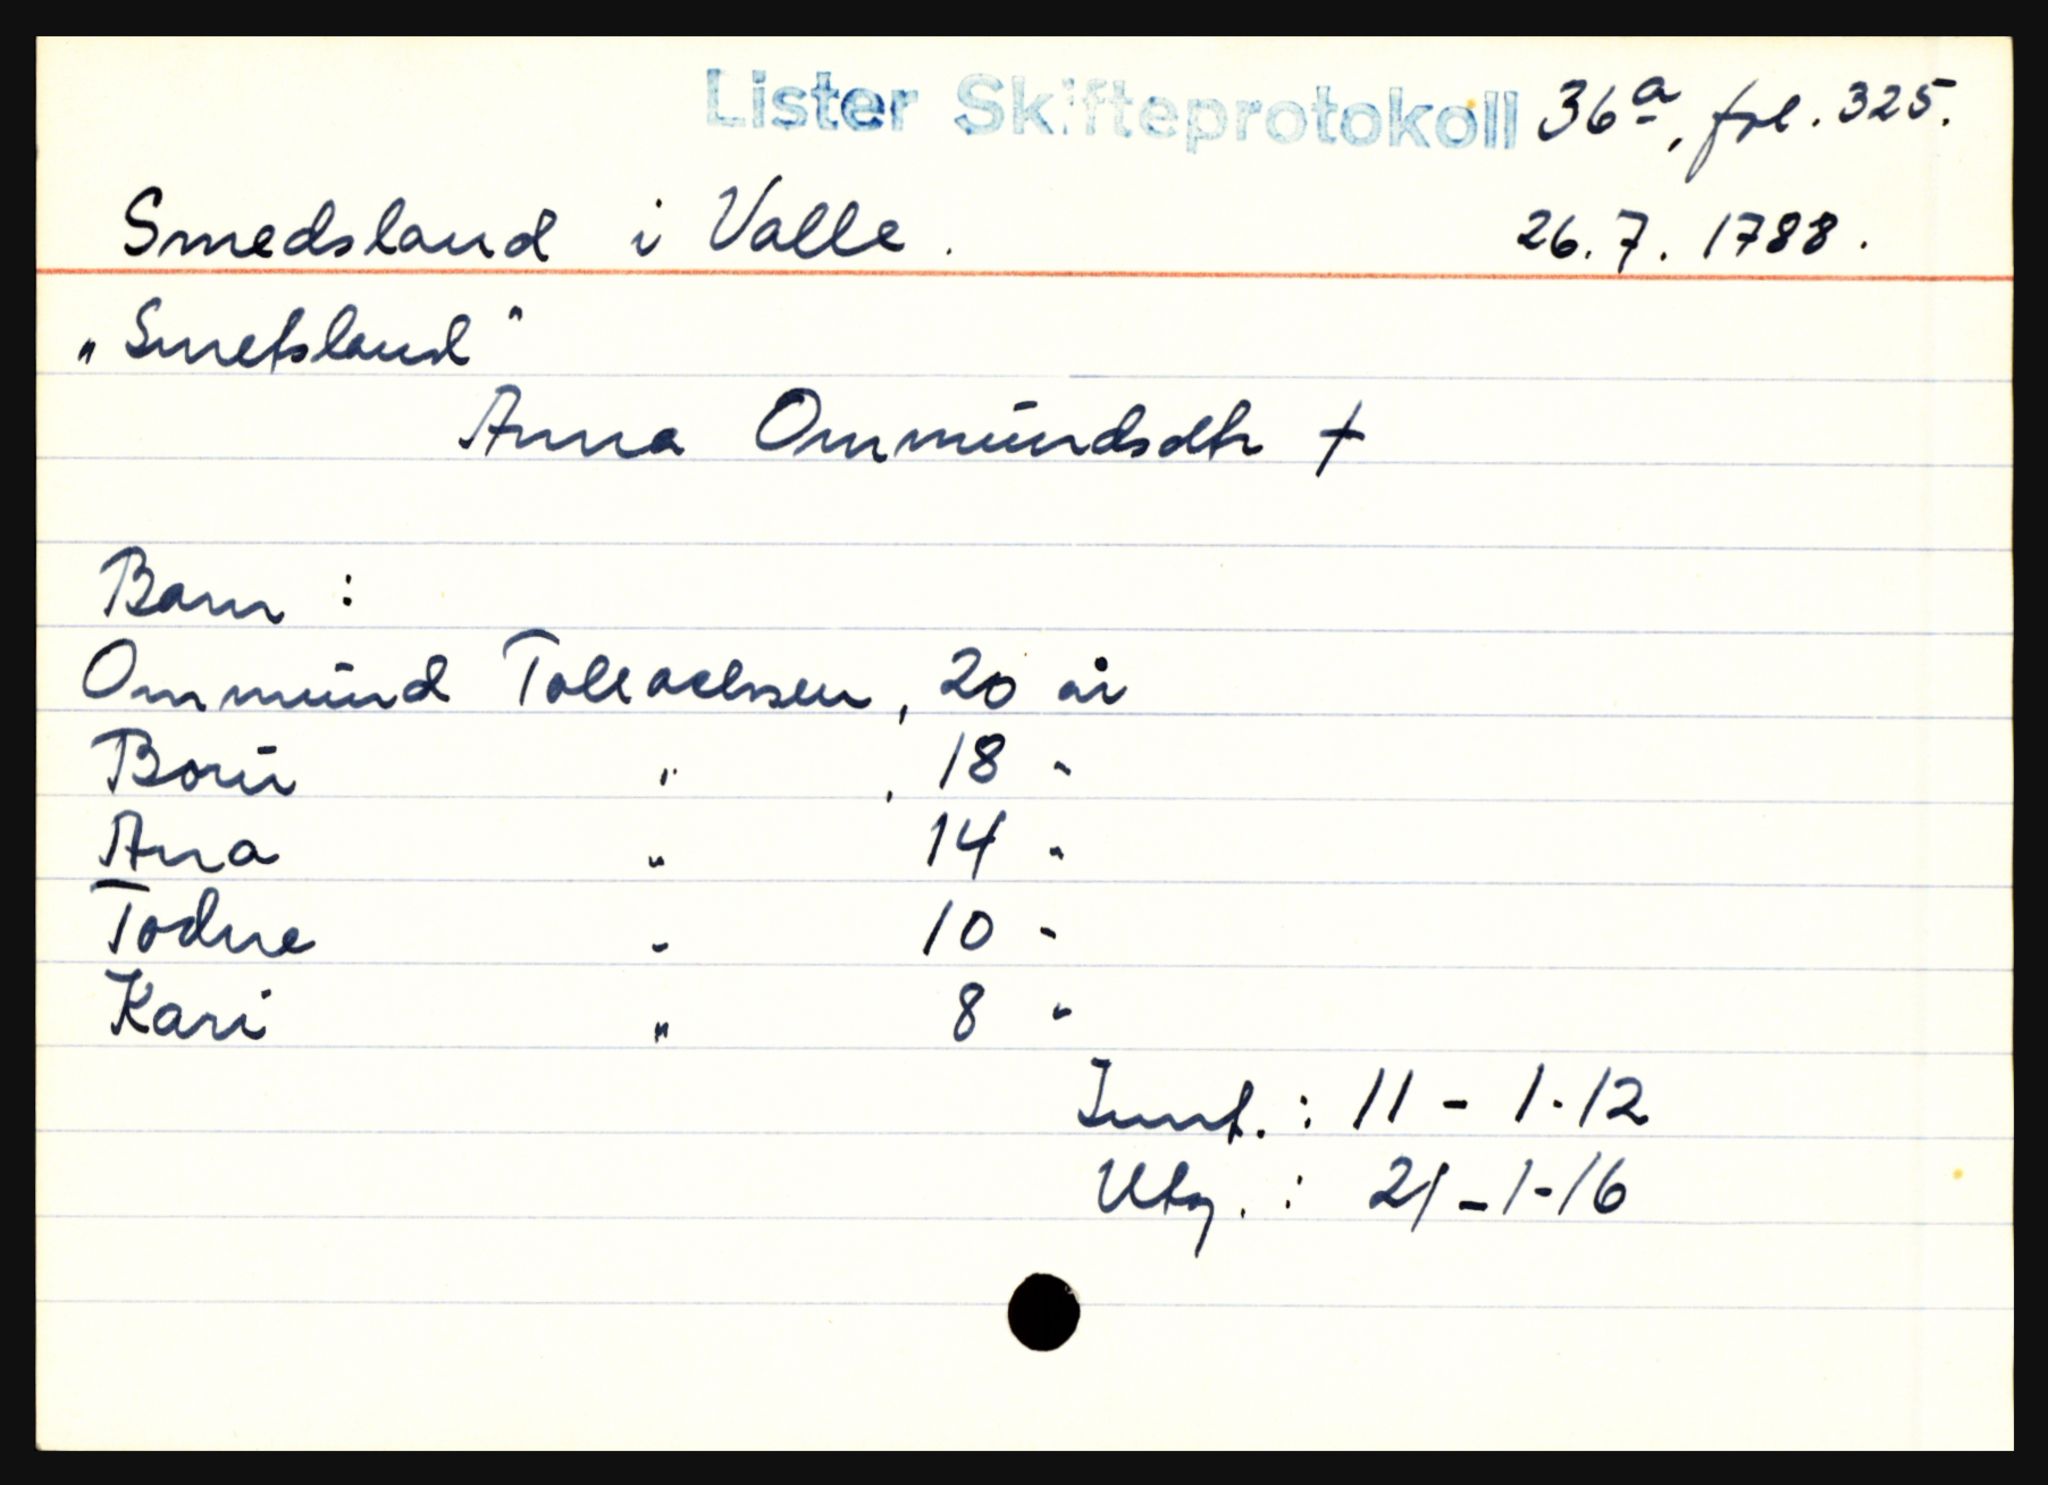 Lister Skifteprotokoll 36a, fol. 325.
Smedsland i Valle. 26.7.1788.
„Smetsland"
Anna Ommundsdtr †
Barn :
Ommund Talleachsen, 20 år
Boru " , 18 "
Ana " 14 "
Todne " 10 "
Kari " 8 "
Innt. : 11 - 1-12
Utg. : 21 - 1-16